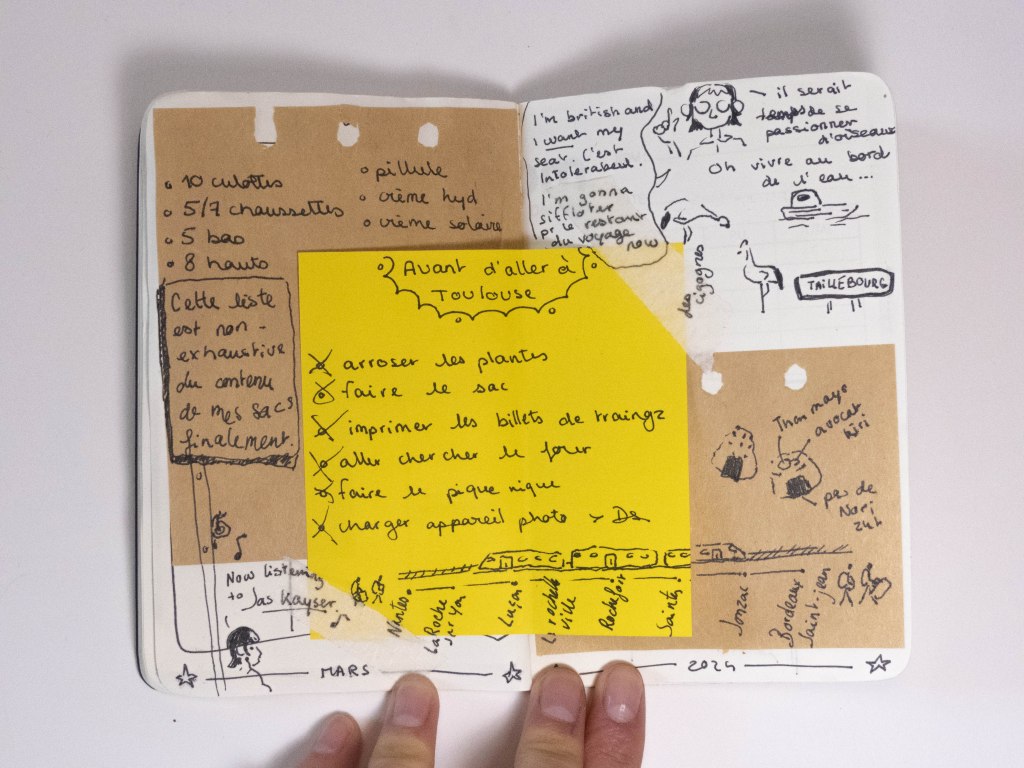 10 culottes
5/7 chaussettes
5 bas
8 hauts
pillule
crème hyd
crème solaire
Cette liste
est non-
exhaustive
du contenu
de mes sacs
finalement.
Now listening
to Jas Kayser
MARS
Avant d'aller à
Toulouse
arroser les plantes
faire le sac
imprimer les billets de traingz
aller chercher le four
faire le pique nique
charger appareil photo > Ds
Nantes
La Roche
sur Yon
Luçon
La rochelle
ville
Rochefort
Saintes
Jonzac
Bordeaux
Saint-jean
I'm british and
I want my
seat. C'est
Intolerabeul.
I'm gonna
siffloter
pr le restant
du voyage
now
il serait
temps de se
passionner
d'oiseaux
Oh vivre au bord
de l'eau...
des
cigognes
TAILLEBOURG
Thon mayo
avocat
kiri
pas de
Nori
2024